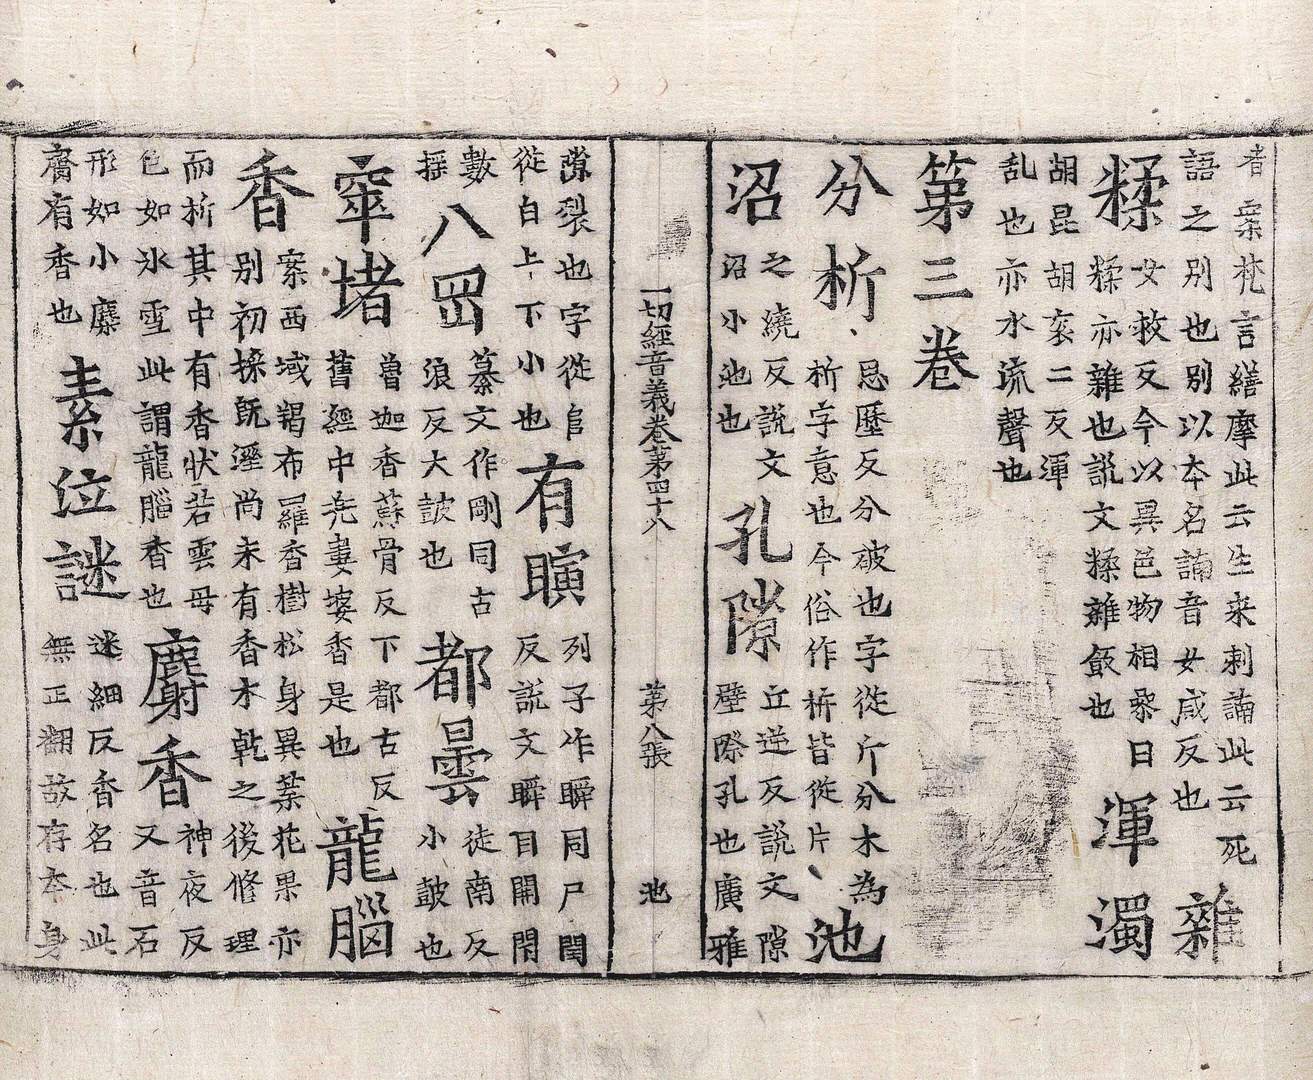 者案梵言繕摩此云生来刺誦此云死
語之別也別以夲名誦音女咸反也雜
糅女救反今以異色物相㕘曰
糅亦雜也說文糅雜飯也渾濁
胡昆胡衮二反渾
乱也亦水流聲也
第三卷
分析思歷反分破也字從斤分木為
析字意也今俗作枿皆從片池
沼之繞反說文
沼小池也孔隙丘逆反說文隙
壁際孔也廣雅
一切經音義卷第四十八 第八張 池
裂也字從𨸏
從白上下小也有瞚列子作瞬同尸閏
反說文瞬目開閇
數揺八𦊆纂文作剛同古
浪反大皷也都曇徒南反
小皷也
窣堵魯迦香蘇骨反下都古反
舊經中兠婁婆香是也龍腦
香案西域羯布羅香樹松身異葉花果亦
別初採旣溼尚未有香木乾之後修理
而析其中有香狀若雲母
色如氷雪此謂龍腦香也麝香神夜反
又音石
形如小麋
𪗋有香也素泣謎迷細反香名也此
無正翻故存夲身